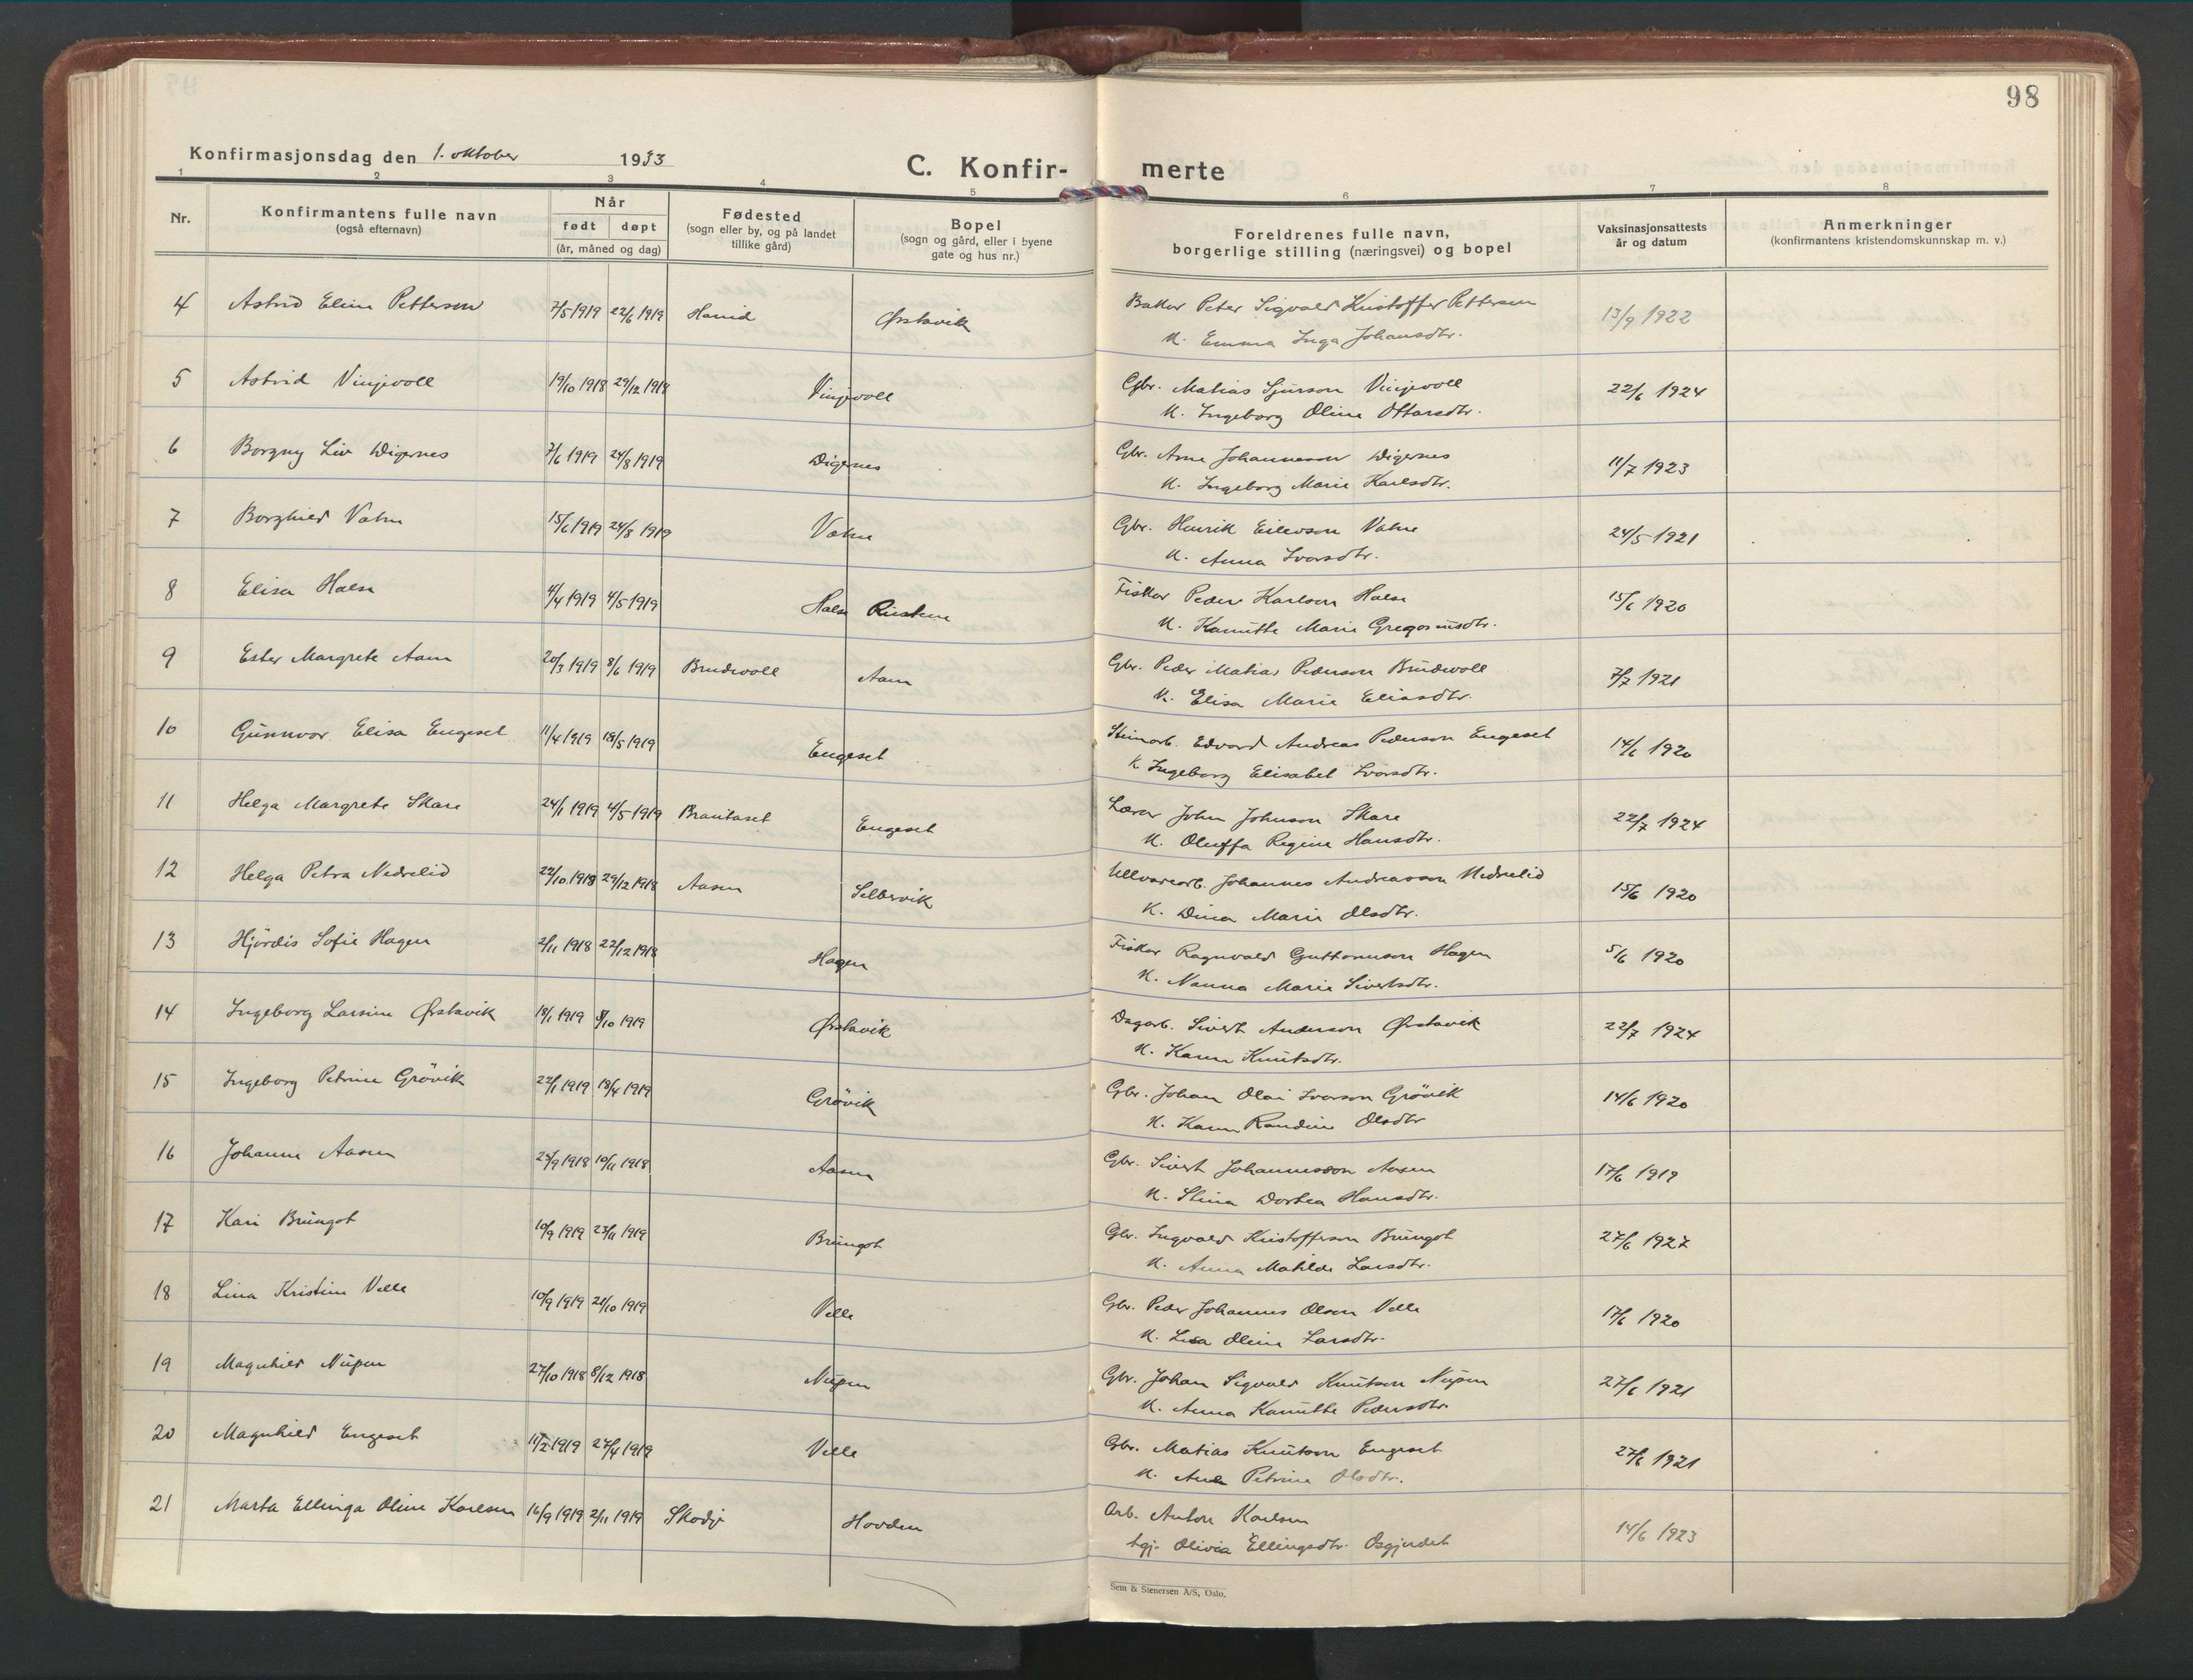 98
Konfirmasjonsdag den 1. oktober 1933
C. Konfir- merte
1 2 3 4 5 6 7 8
Nr.
Konfirmantens fulle navn
(også efternavn)
Når
født døpt
(år, måned og dag)
Fødested
(sogn eller by, og på landet
tillike gård)
Bopel
(sogn og gård, eller i byene
gate og hus nr.)
Foreldrenes fulle navn,
borgerlige stilling (næringsvei) og bopel
Vaksinasjonsattests
år og datum
Anmerkninger
(konfirmantens kristendomskunnskap m. v.)
4 Astrid Eline Pettersen 7/5 1919 22/6 1919 Hareid Ørstavik Baker Peter Sigvald Kristoffer Pettersen 13/9 1922
K. Emma Inga Johansdtr.
5 Astrid Vinjevoll 19/10 1918 29/12 1918 Vinjevoll Gbr. Matias Sjurson Vinjevoll 22/6 1924
K. Ingeborg Oline Ottarsdtr.
6 Borgny Liv Digernes 7/6 1919 24/8 1919 Digernes Gbr. Arne Johannesson Digernes 11/7 1923
K. Ingeborg Marie Karlsdtr.
7 Borghild Vatne 15/6 1919 24/8 1919 Vatne Gbr. Henrik Eilevson Vatne 24/5 1921
K. Anna Ivarsdtr.
8 Elisa Halse 4/4 1919 4/5 1919 Halse Fisker Peder Karlson Halse 15/6 1920
K. Kanutte Marie Gregoriusdtr.
9 Ester Margrete Aam 20/3 1919 8/6 1919 Brudevoll Aam Gbr. Peder Matias Pederson Brudevoll 7/7 1921
K. Elisa Marie Eliasdtr.
10 Gunnvor Elisa Engeset 11/4 1919 18/5 1919 Engeset Steinarb. Edvard Andreas Pederson Engeset 14/6 1920
K. Ingeborg Elisabet Ivarsdtr.
11 Helga Margrete Skare 24/1 1919 4/5 1919 Brautaset Engeset Lærer John Johnson Skare 22/7 1924
K. Oluffa Regine Hansdtr.
12 Helga Petra Nedrelid 22/10 1918 29/12 1918 Aasen Selbervik Ullvarearb. Johannes Andreasson Nedrelid 15/6 1920
K. Dina Marie Olsdtr.
13 Hjördis Sofie Hagen 2/11 1918 22/12 1918 Hagen Fisker Ragnvald Guttormson Hagen 5/6 1920
K. Nanna Marie Sivertsdtr.
14 Ingeborg Larsine Ørstavik 18/1 1919 5/10 1919 Ørstavik Dagarb. Sivert Anderson Ørstavik 22/7 1924
K. Karen Knutsdtr.
15 Ingeborg Petrine Grövik 22/1 1919 13/4 1919 Grövik Gbr. Johan Olai Ivarson Grövik 14/6 1920
K. Karen Randine Olsdtr
16 Johanna Aasen 25/9 1918 10/11 1918 Aasen Gbr. Sivert Johannesson Aasen 17/6 1919
K. Stina Dortea Hansdtr.
17 Kari Brungot 10/9 1919 23/11 1919 Brungot Gbr. Ingvald Kristofferson Brungot 27/6 1927
K. Anna Matilde Larsdtr.
18 Lina Kristine Velle 10/9 1919 21/10 1919 Velle Gbr. Peder Johannes Olson Velle 17/6 1920
K. Lisa Oline Larsdtr.
19 Magnhild Nupen 27/10 1918 8/12 1918 Nupen Gbr. Johan Sigvald Knutson Nupen 27/6 1921
K. Anna Kanutte Pedersdtr.
20 Magnhild Engeset 11/2 1919 27/4 1919 Velle Gbr. Matias Knutson Engeset 27/6 1921
K. Ane Petrine Olsdtr.
21 Marta Ellinga Oline Karlsen 16/9 1919 2/11 1919 Skodje Hovden Arb. Anton Karlsen 14/6 1923
tgj. Olivia Ellingsdtr. Osgjerdet
Sem & Stenersen A/S, Oslo.